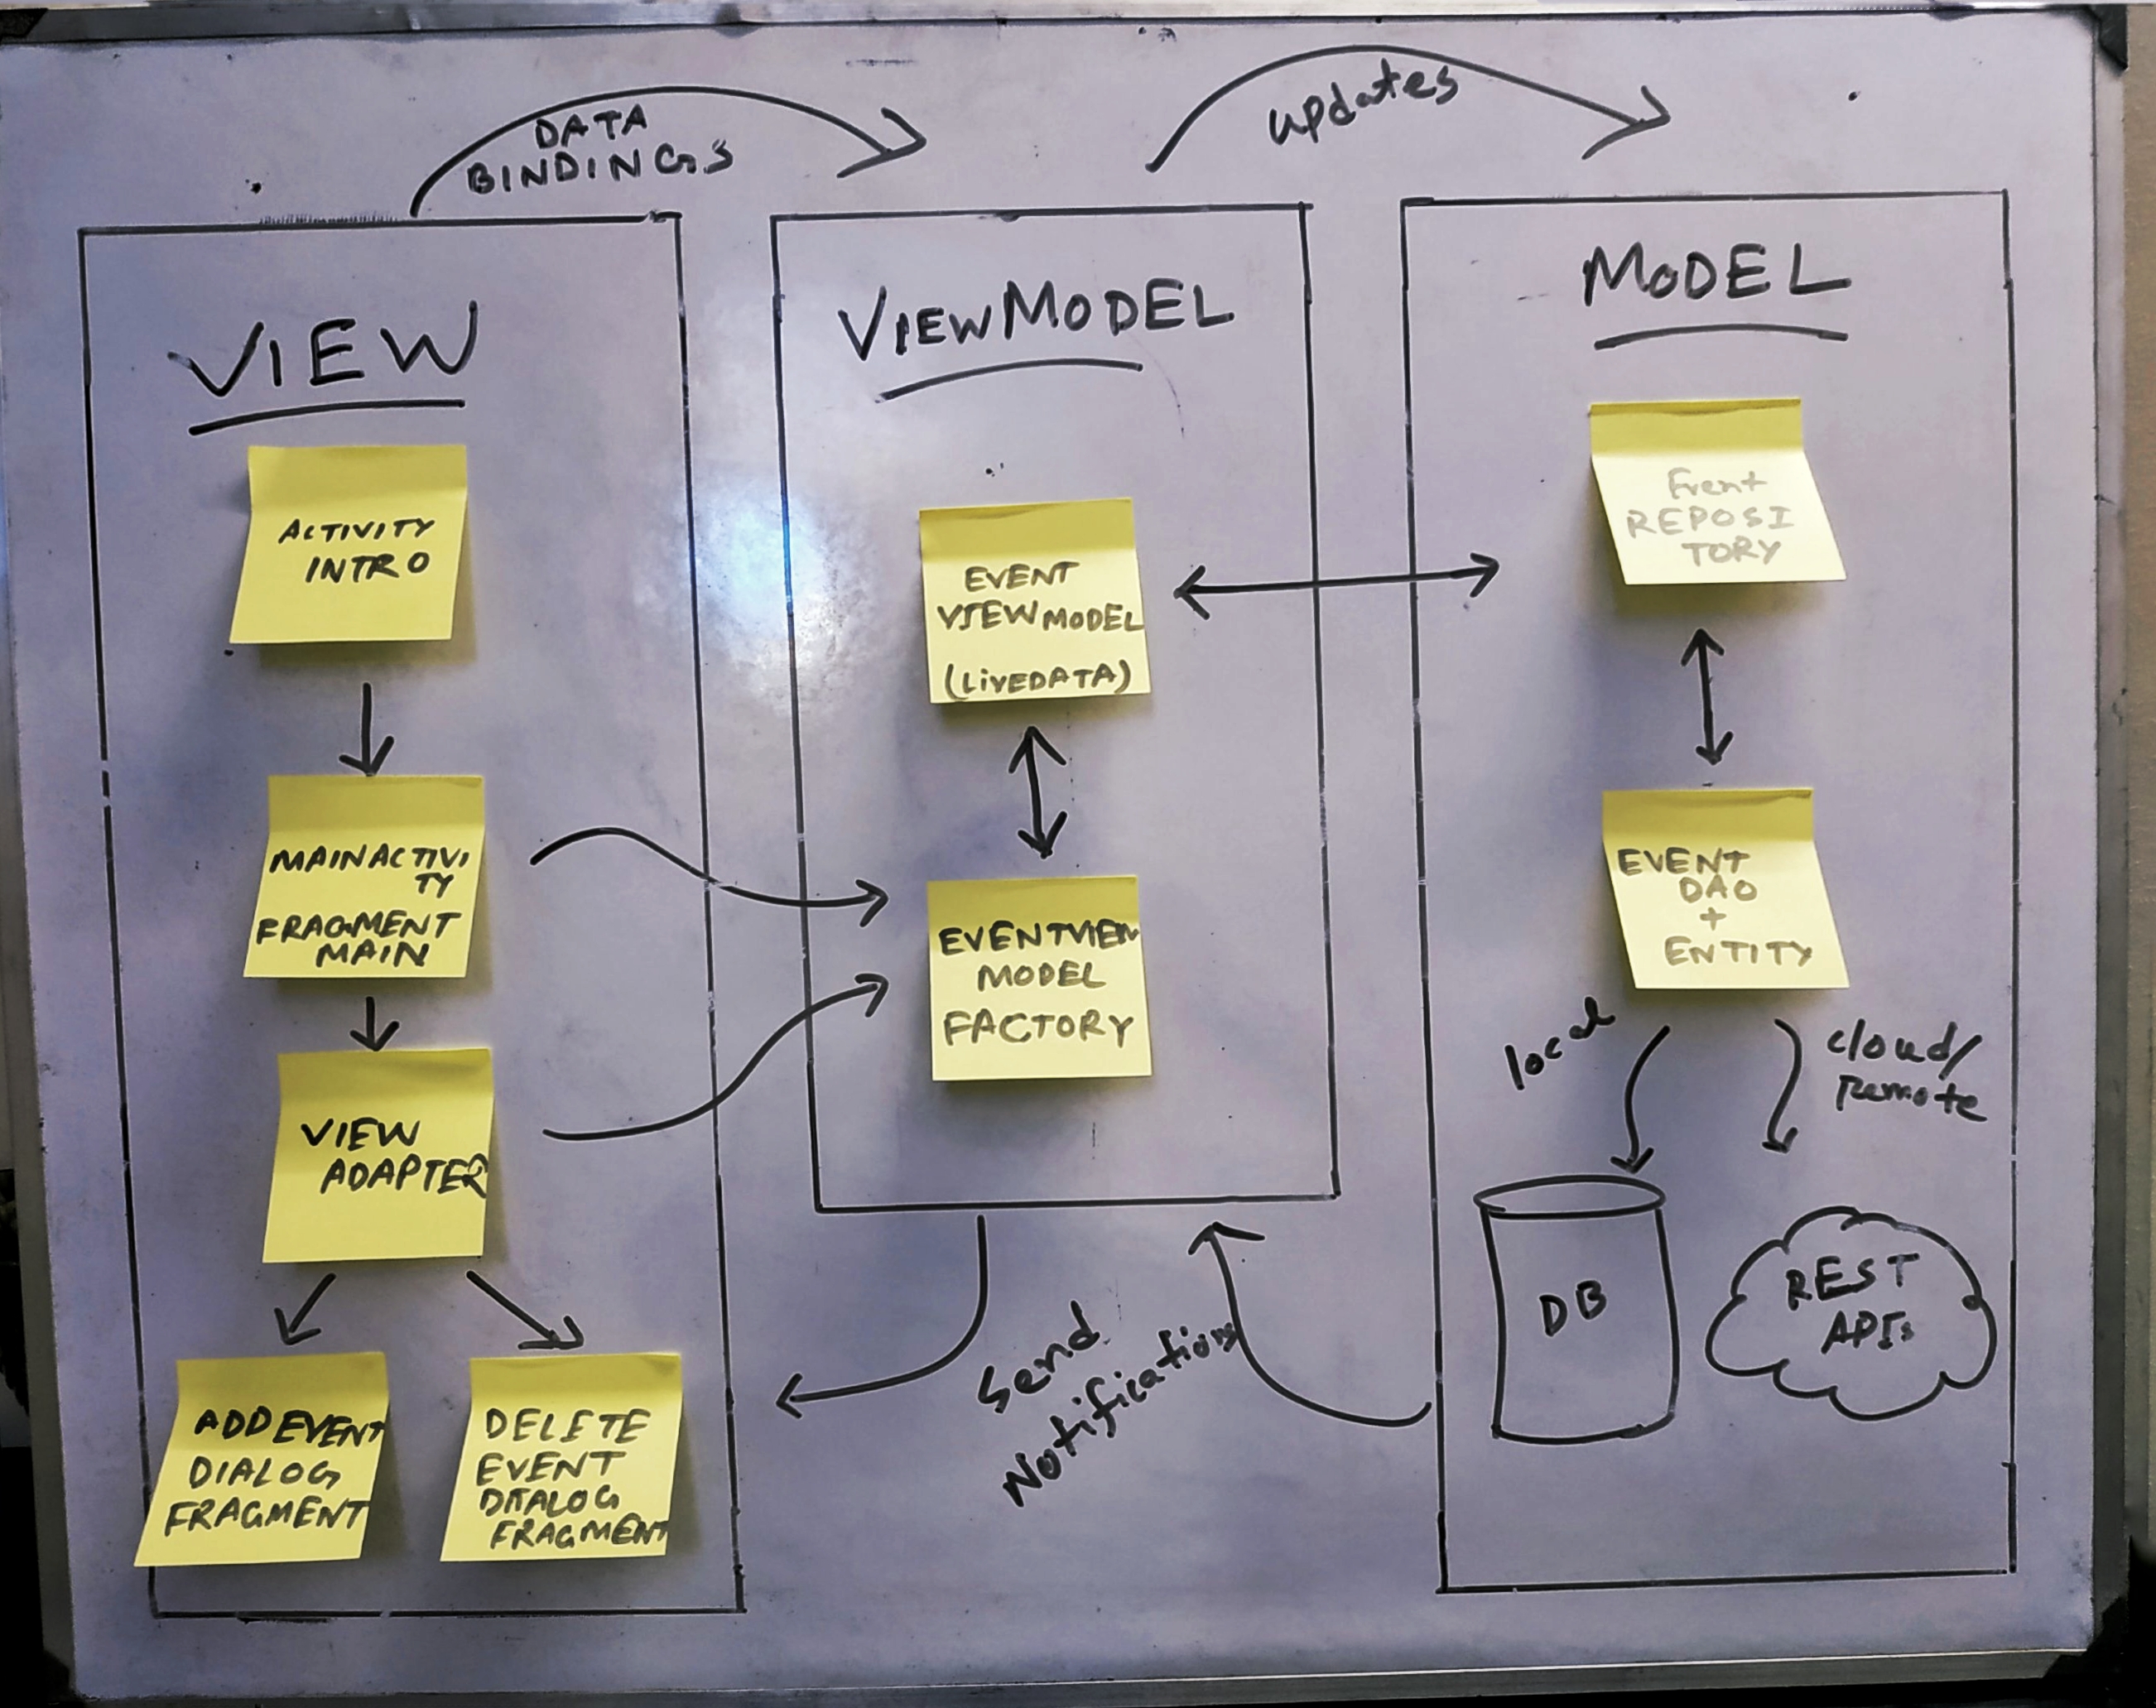 DATA
BINDINGS
updates
VIEW
ACTIVITY
INTRO
MAINACTIVI
TY
FRAGMENT
MAIN
VIEW
ADAPTER
ADD EVENT
DIALOG
FRAGMENT
DELETE
EVENT
DIALOG
FRAGMENT
VIEWMODEL
EVENT
VIEWMODEL
(LIVEDATA)
EVENTVIEW
MODEL
FACTORY
Send
Notifications
MODEL
Event
REPOSI
TORY
EVENT
DAO
+
ENTITY
local
cloud/
Remote
DB
REST
APIs